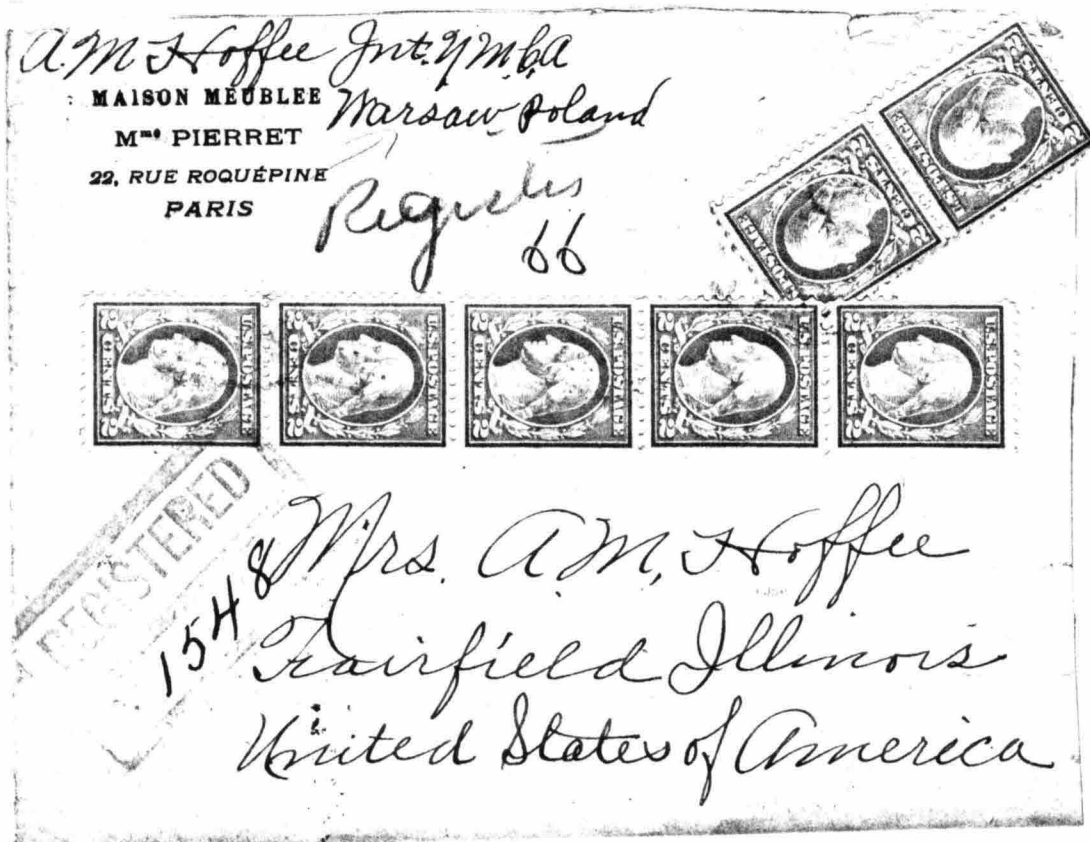 A. M. Hoffee Int. Y.M.C.A
Warsaw Poland
MAISON MEUBLEE
Mme PIERRET
22, RUE ROQUÉPINE
PARIS
Register
66
U.S. POSTAGE
2 CENTS 2
U.S. POSTAGE
2 CENTS 2
2 CENTS 2
U.S. POSTAGE
2 CENTS 2
U.S. POSTAGE
2 CENTS 2
U.S. POSTAGE
2 CENTS 2
U.S. POSTAGE
2 CENTS 2
U.S. POSTAGE
REGISTERED
1548
Mrs. A.M. Hoffee
Fairfield Illinois
United States of America